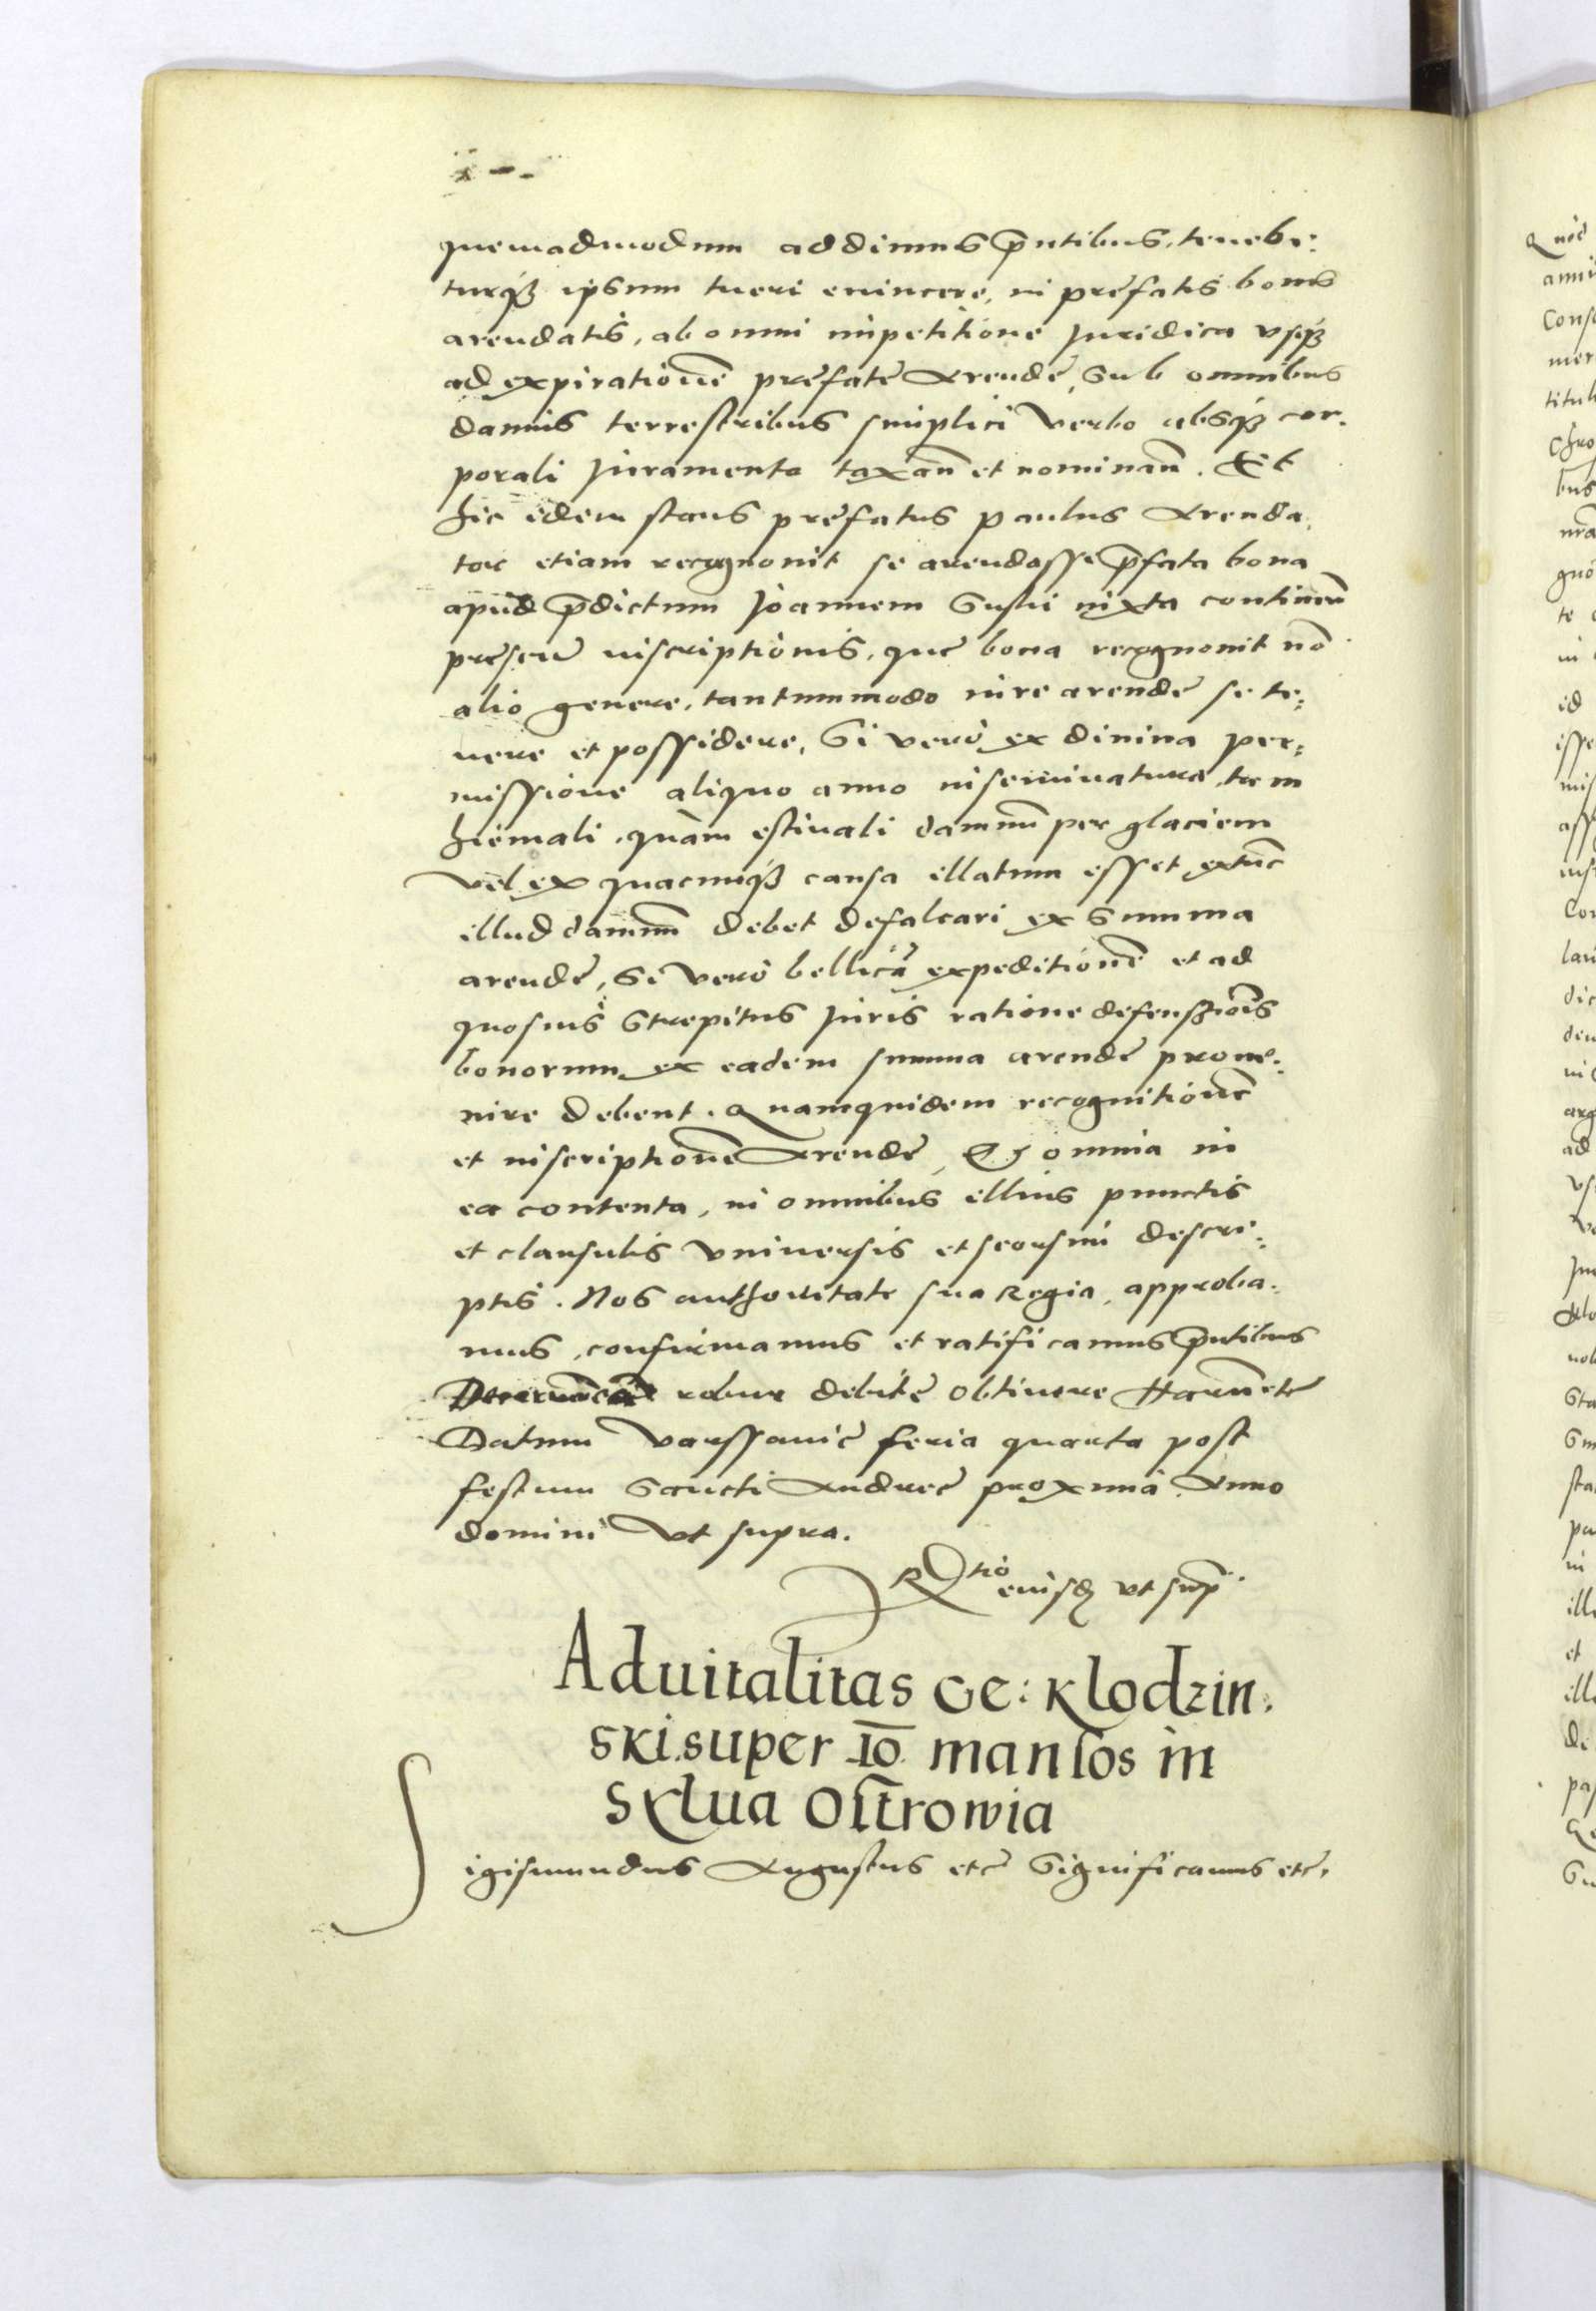 quemadmodum addimus p̄ntibus, tenebi:
turqꝫ ipsum tueri evincere, in prefatis bonis
arendatis, ab omni impetitione Juridica vsqꝫ
ad expirationē prefate Arende, Sub omnibus
damnis terrestribus simplici verbo absqꝫ cor.
porali Juramento taxan̄ et nominan̄. Et
hic idem stans prefatus paulus Arenda,
tor etiam recognouit se arendasse p̄fata bona
apud p̄dictum Joannem iuxta continēn
presen̄ inscriptionis, que bona recognouit nō
alio genere, tantummodo iure arende se te:
nere et possidere, Si verò ex diuina per:
missione aliquo anno inseminatura tam
hiemali, quàm estiuali damnū per glaciem
vel ex quacunqꝫ causa illatum esset extūc
illud damnū debet defalcari ex Summa
arende, Si verò bellicā expeditionē et ad
quosuis Strepitus Juris ratione defensiōis
bonorum ex eadem summa arende proue:
nire debent. Quamquidem recognitionē
et inscriptionē Arende, Et omnia in
ea contenta, in omnibus illius punctis
et clausulis vniuersis et seorsim descri:
ptis. Nos authoritate sua Regia, approba.
mus, confirmamus et ratificamus p̄ntibus
robur debite obtinere Harū etc
Datum Varssauie feria quarta post
festum Sancti Andree proxima Anno
domini vt supra.
Rtio eiusdꝫ vt sup̄
Aduitalitas Ge: Klodzin.
ski super 10 mansos in
Sylua Ostrowia
Sigismundus Augustus etc Significamus etc,